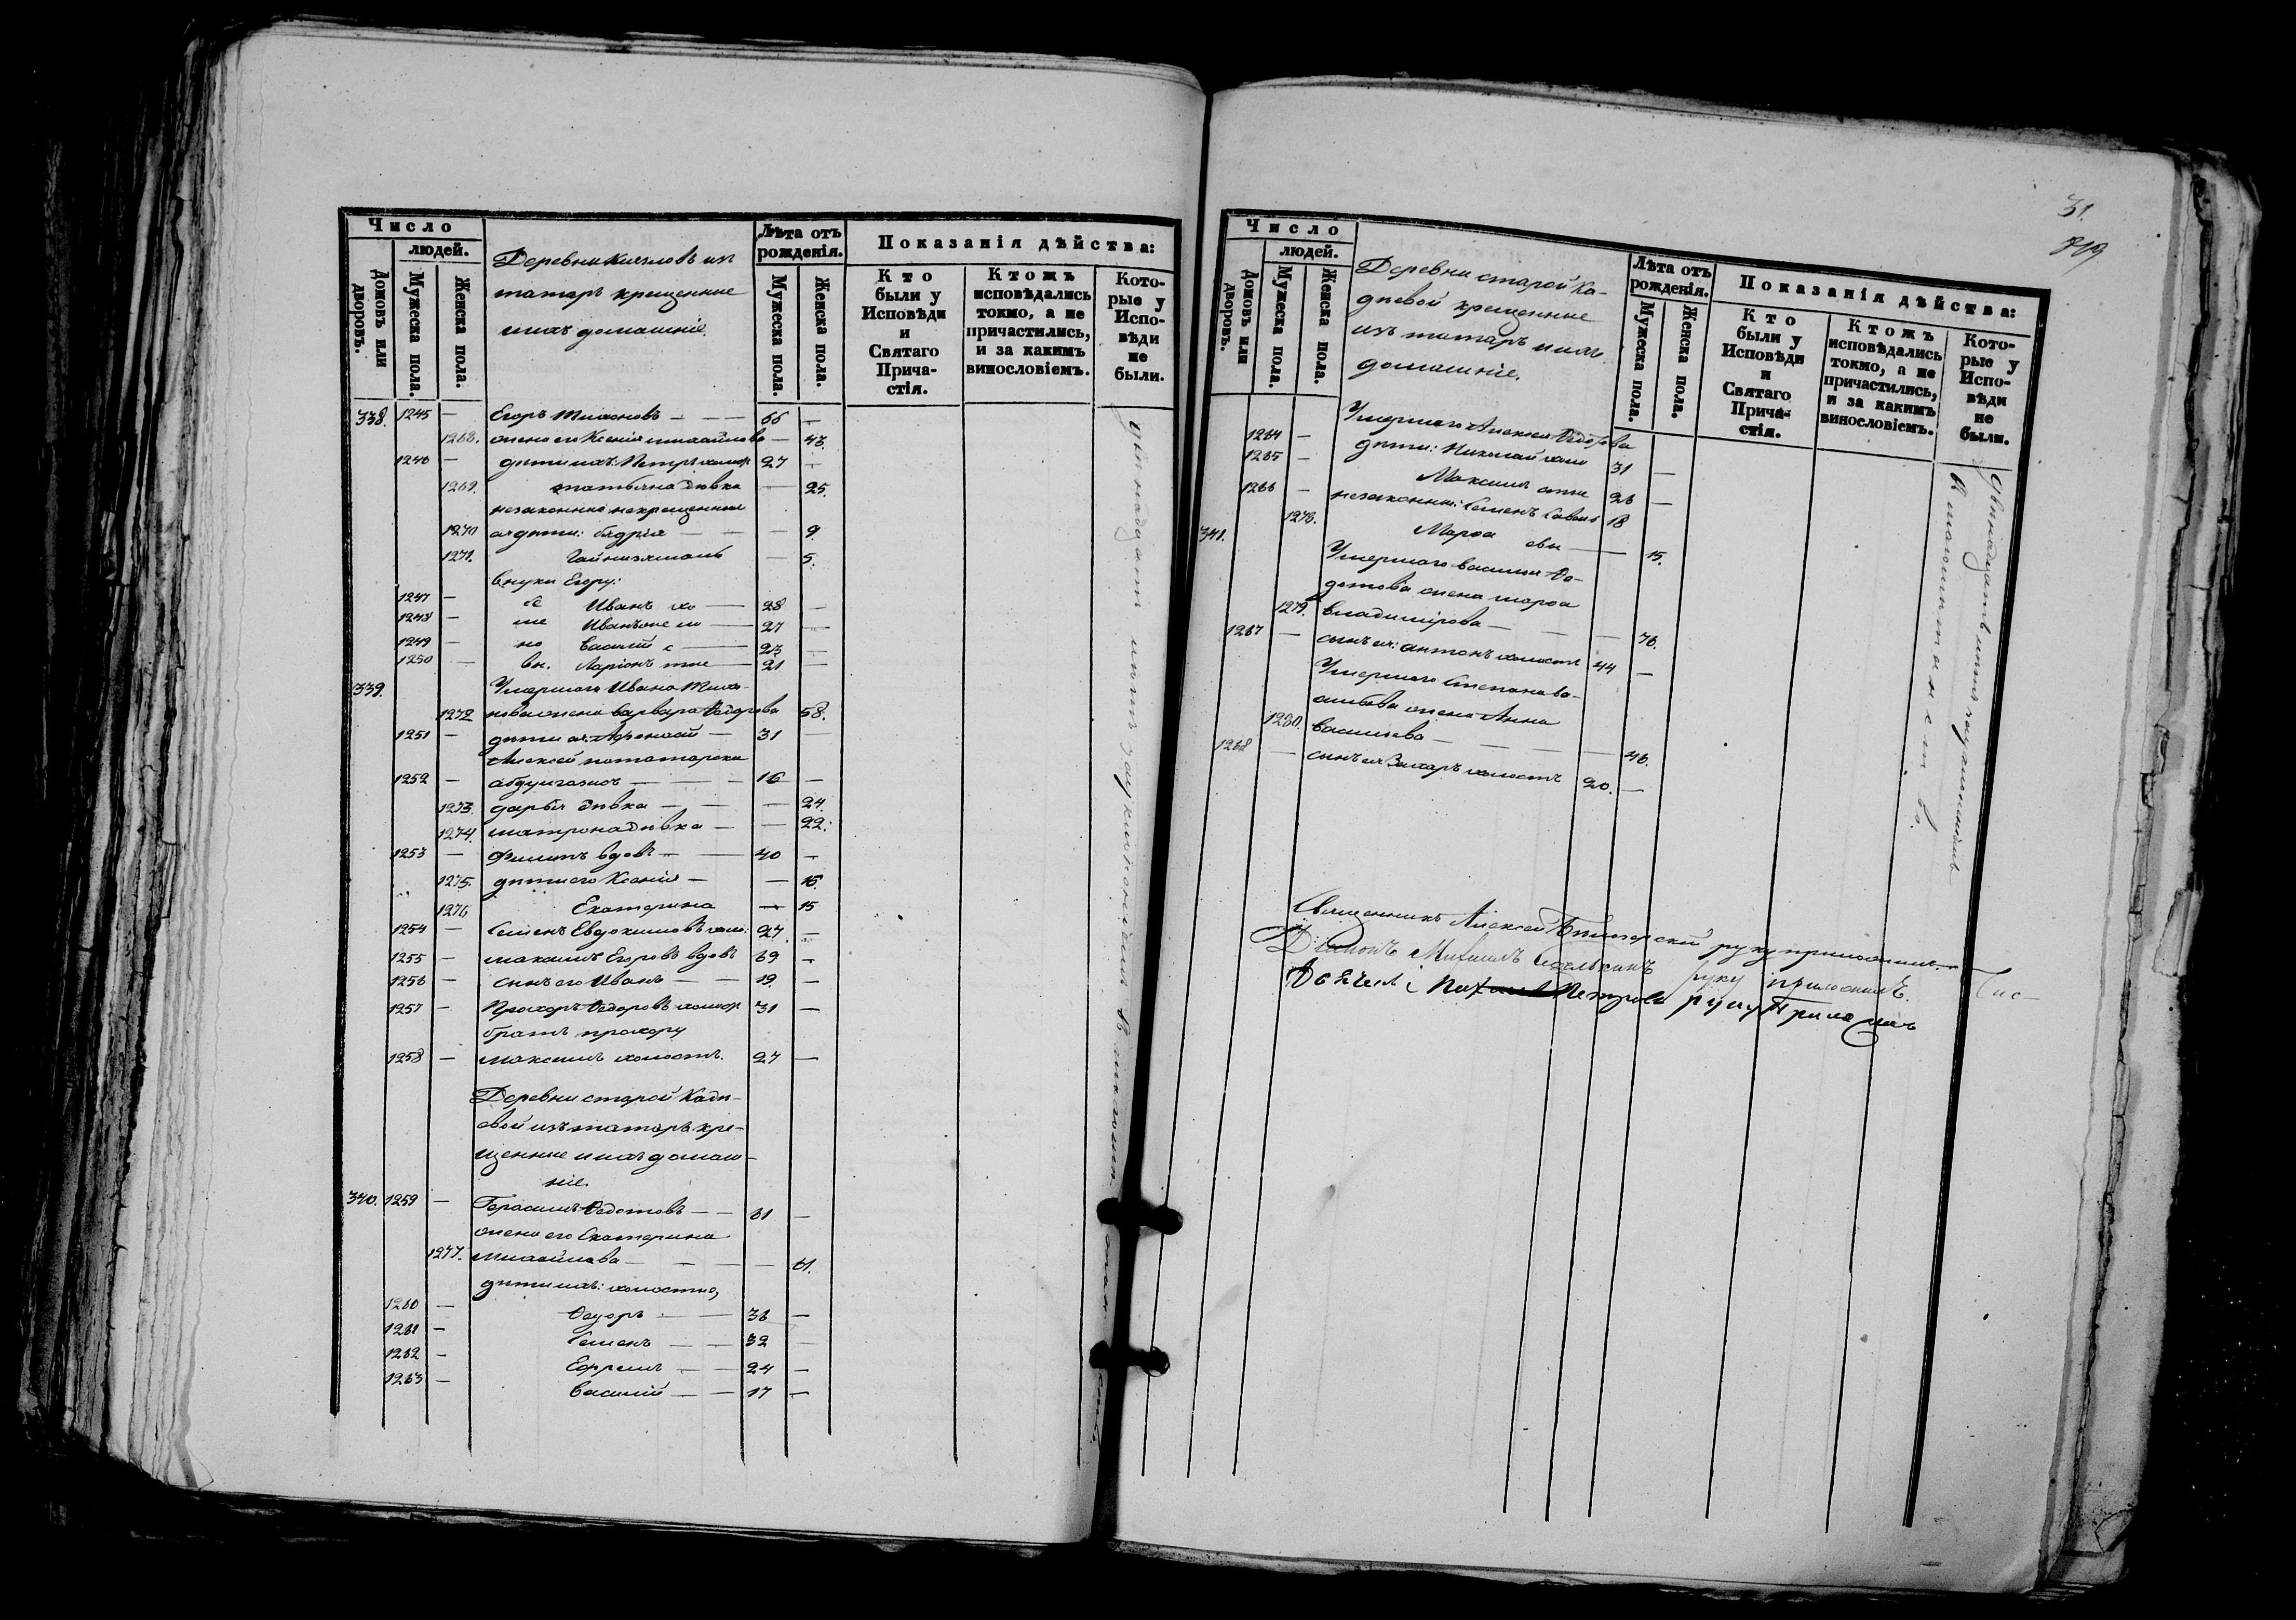 Число
людей.
Домовъ или дворовъ.
Мужеска пола.
Женска пола.
Деревни
татаръ крещенные
ихъ домашніе.
Лѣта отъ
рожденія.
Мужеска пола.
Женска пола.
Показанія дѣйства:
Кто
были у
Исповѣди
и
Святаго
Прича-
стія.
Ктожъ
исповѣдались
токмо, а не
причастились,
и за какимъ
винословіемъ.
Кото-
рые у
Испо-
вѣди
не
были.
338. 1245 — Егоръ Тихоновъ — — — 66 —
1268. жена его Ксенія Михайлова — 43.
1246 — дѣти ихъ: Петръ холост 27 —
1269. татьяна дѣвка — 25.
незаконно некрещенные
1270 ея дѣти: бядрія — — — 9.
1271. — 5.
внуки Егору:
1247 — Иванъ хо — 28 —
1248 — Иванъ 27 —
1249 — Василій с — 23 —
1250 — Ларіонъ тже — 21 —
339. Умершаго Ивана Тихо-
1272 нова жена варвара Ѳедорова 58.
1251 — дѣти ея: Афонасій — 31 —
Алексей потатарски
1252 — — 16 —
1273. дарья дѣвка — — — 24.
1274. матрона дѣвка — — 22.
1253 — Филипъ вдовъ — — 40 —
1275. дѣти его Ксенія — — 16.
1276 Екатерина — 15
1254 — Семенъ Евдокимовъ холо: 27 —
1255 — максимъ Егоровъ вдовъ 69 —
1256 — сынъ его Иванъ — — 19. —
1257 — Прохоръ Ѳедоровъ холост 31 —
братъ прохору
1258 — максимъ холостъ. 27 —
Деревни старой Кадѣ-
евой изъ татаръ кре-
щенные и ихъ домаш-
ніе.
340. 1259 — Герасимъ Ѳедотовъ — — 61 —
жена его Екатерина
1277. Михайлова — — — — 61.
дѣти ихъ: холостые,
1260 — Ѳедоръ — — 36 —
1261 — Семенъ — — 32 —
1262 — Ефремъ — — 24 —
1263 — Василій — — 17 —
двѣнадцать лѣтъ
31.
Число
людей.
Домовъ или дворовъ.
Мужеска пола.
Женска пола.
Деревни старой Ка-
дѣевой крещенные
изъ татаръ и ихъ
домашніе.
Лѣта отъ
рожденія.
Мужеска пола.
Женска пола.
Показанія дѣйства:
Кто
были у
Исповѣди
и
Святаго
Прича-
стія.
Ктожъ
исповѣдались
токмо, а не
причастились,
и за какимъ
винословіемъ.
Кото-
рые у
Испо-
вѣди
не
были.
Умершаго Алексея Ѳедотова
1264 — дѣти: Николай холо 31 —
1265 — Максимъ тже 26 —
1266 — незаконны: Семенъ Савел 18
1278. Марѳа — 15.
341. Умершаго василья Ѳе-
дотова жена марѳа
1279. владимірова — — — — 76.
1267 — сынъ ея: антонъ холостъ 44 —
Умершаго Степана ва-
сильева жена Анна
1280. Васильева — — — — — 46.
1268 — сынъ ея Захаръ холостъ 20. —
двѣнадцать лѣтъ
Священникъ Алексей руку приложилъ.
Діаконъ Михаилъ руку приложилъ.
Петровъ руку Приложилъ